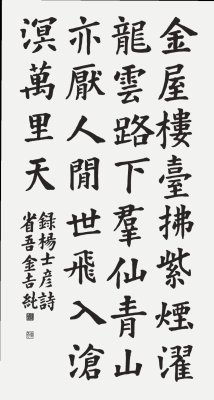 金屋樓臺拂紫煙濯
龍雲路下羣仙青山
亦厭人間世飛入滄
溟萬里天
錄楊士彦詩
省吾金吉